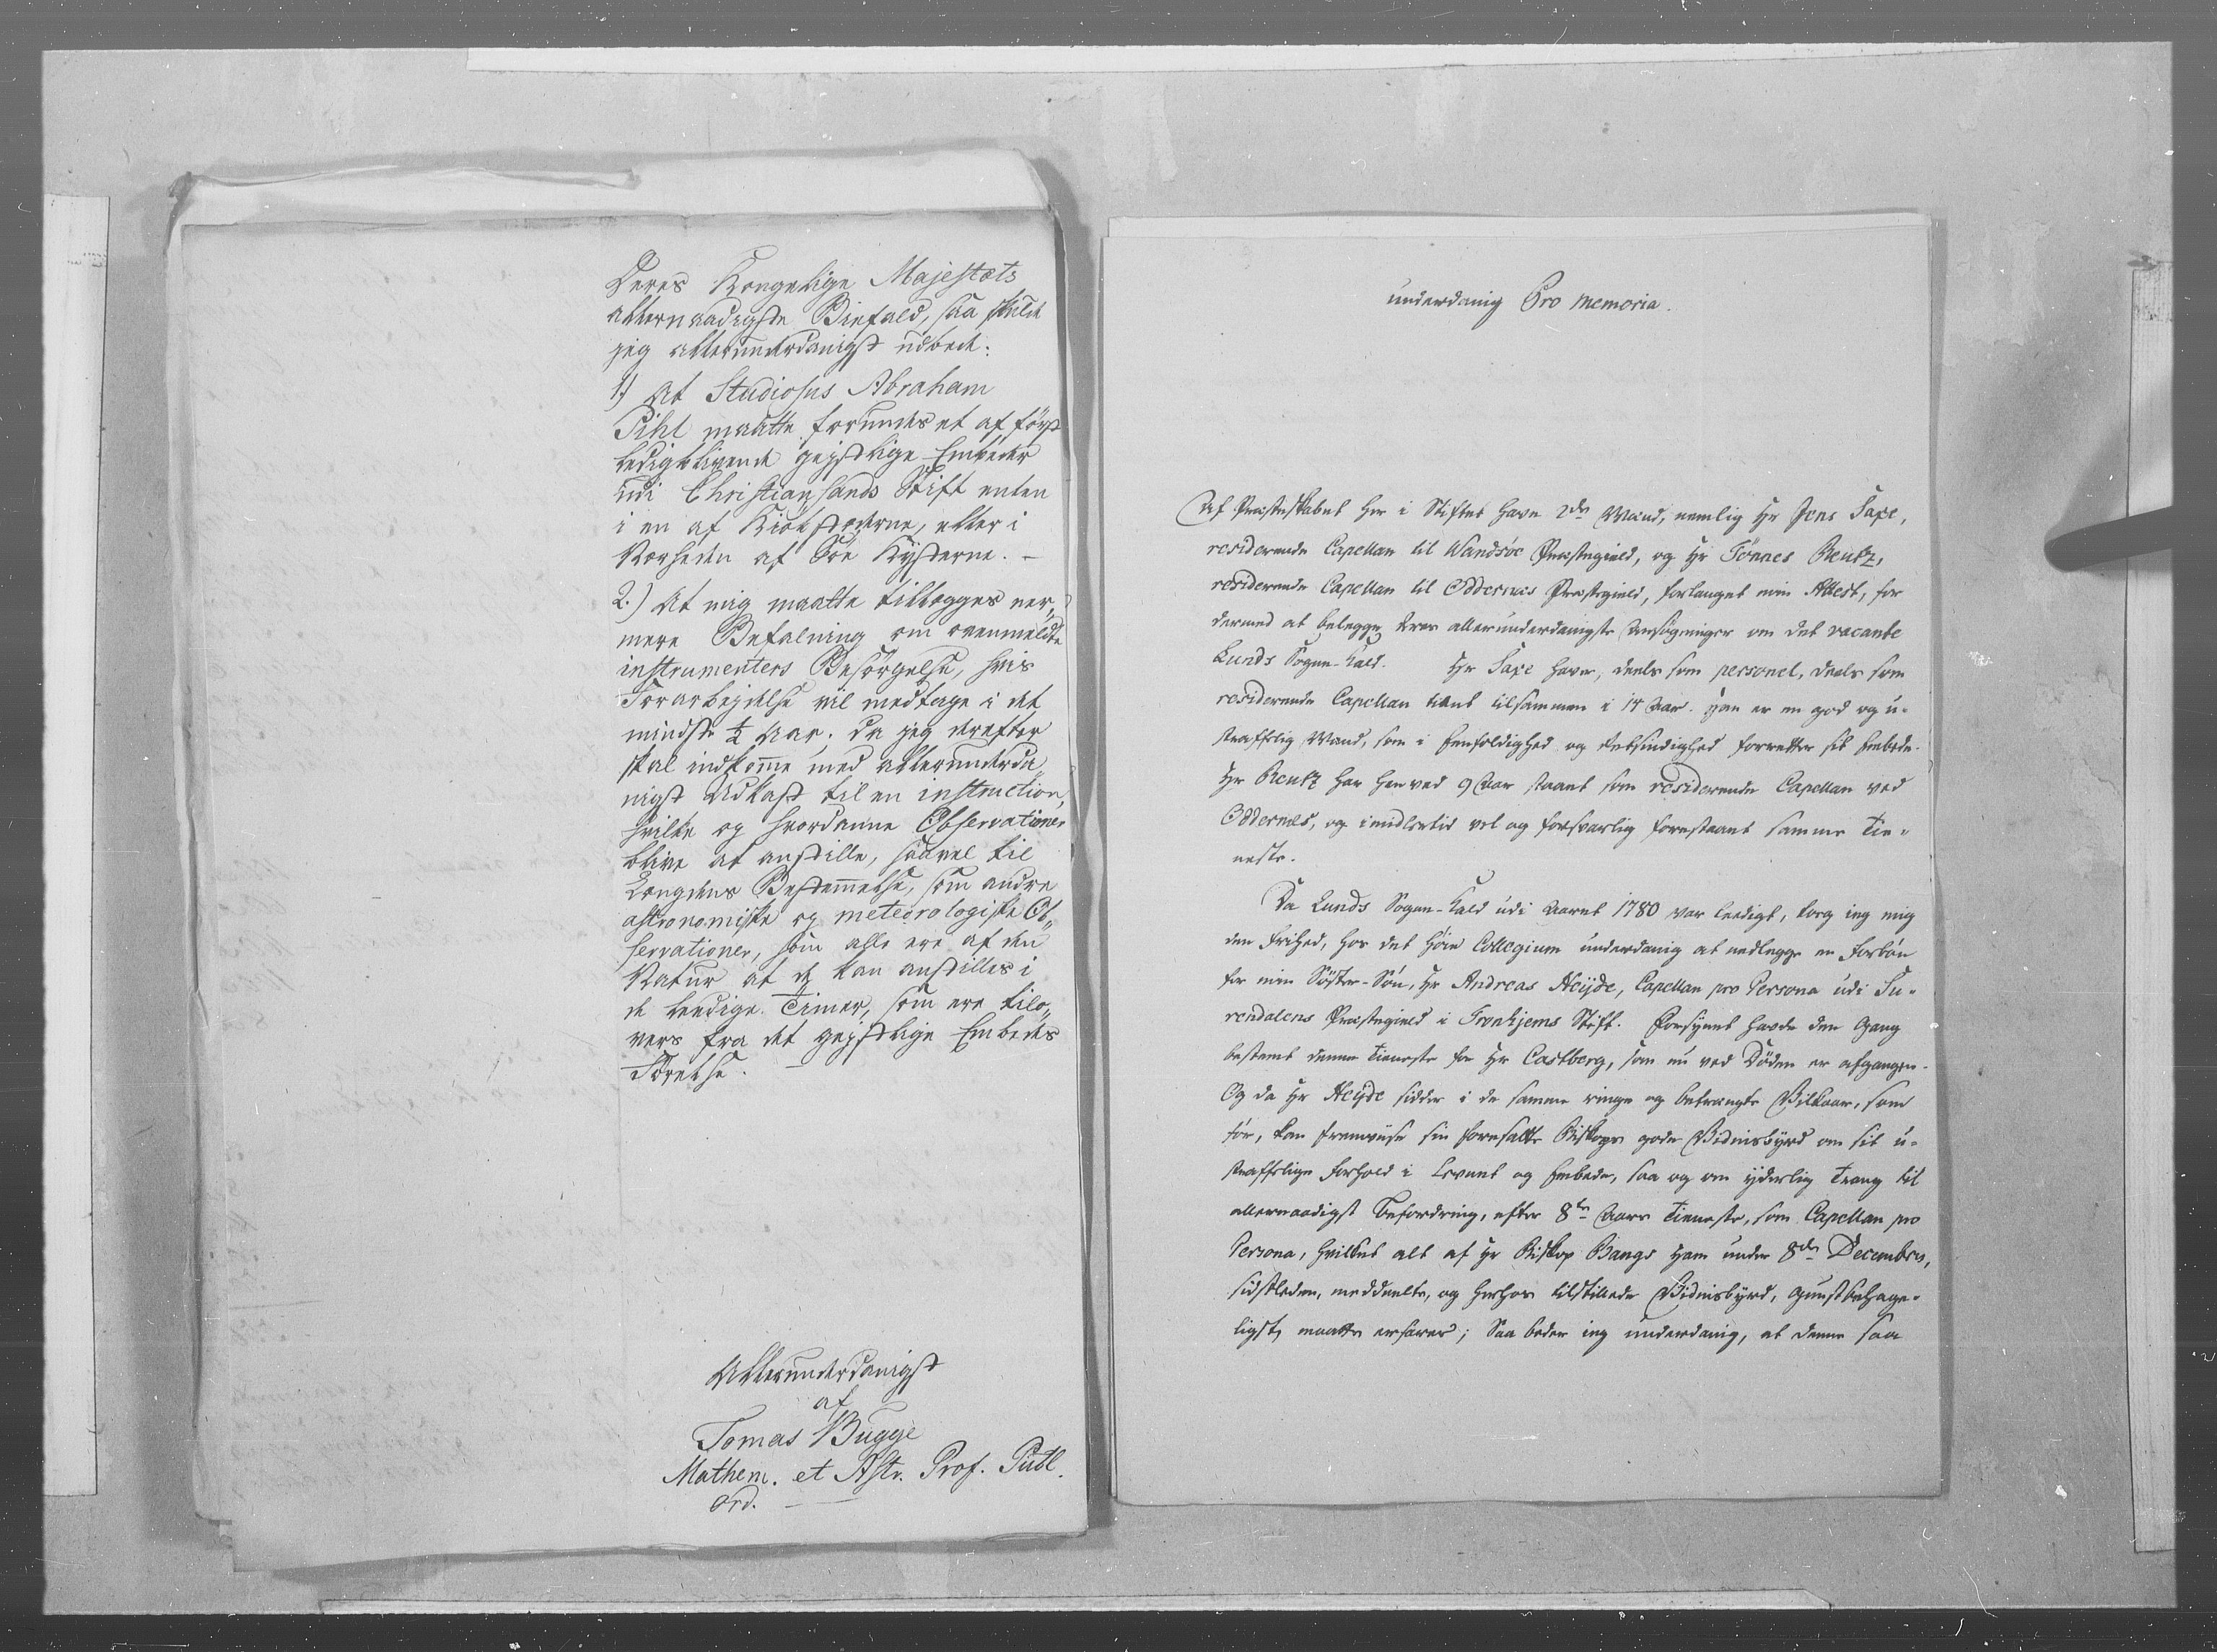 Deres Kongelige Majestæts
allernaadigste Biefald, saa skulde
jeg allerunderdanigst udbede:
1) At Studiosus Abraham
Pihl maatte forundes et af först
ledigblivende gejstlige Embeder
udi Christiansands Stift enten
i en af Kiöbstæderne, eller i
Nærheden af Söe Kysterne. –
2.) At mig maatte tillægges nær„
mere Befalning om ovenmeldte
instrumenters Besörgelse, hvis
Forarbejdelse vil medtage i det
mindste ½ Aar. Da jeg derefter
skal indkomme med allerunderda„
nigst Udkast til en instruction,
hvilke og hvordanne Observationer
blive at anstille, saavel til
Længdens Bestemmelse, som andre
astronomiske og meteorologiske Ob„
servationer, som alle ere af den
Natur at de kan anstilles i
de leedige Timer, som ere tilo„
vers fra det gejstlige Embedes
Förelse. –
Allerunderdanigst
af
Tomas Bugge
Mathem. et Astr. Prof. Publ.
ord. –
underdanig Pro memoria.
Af Præsteskabet her i Stiftet have 2de Mænd, nemlig Hr Jens Saxe,
residerende Capellan til Wandsöe Præstegield, og Hr Tönnes Reutz,
residerende Capellan til Oddernes Præstegield, forlanget min Attest, for
dermed at belegge deres allerunderdanigste Ansögninger om det vacante
Lunds Sogne-Kald. Hr Saxe haver, deels som personel, deels som
residerende Capellan tient tilsammen i 14 Aar. Han er en god og u-
straffelig Mand, som i Eenfoldighed og Retsindighed forretter sit Embede.
Hr Reutz har henved 9 Aar staaet som residerende Capellan ved
Oddernes, og imidlertid vel og forsvarlig forestaaet samme Tie-
neste.
Da Lunds Sogne-Kald udi Aaret 1780 var leedigt, torg ieg mig
den Frihed, hos det höie Collegium underdanig at nedlegge en Forbön
for min Söster-Sön, Hr Andreas Heyde, Capellan pro Persona udi Su-
rendalens Præstegield i Tronhjems Stift. Forsynet havde den Gang
bestemt denne Tieneste for Hr Castberg, som nu ved Döden er afgangen.
Og da Hr Heyde sidder i de samme ringe og betrængte Vilkaar, som
för, kan fremviise sin foresatte Biskops gode Vidnisbyrd om sit u-
straffelige Forhold i Levnet og Embede, saa og om yderlig Trang til
allernaadigst Befordring, efter 8te Aars Tieneste, som Capellan pro
Persona, hvilket alt af Hr Biskop Bangs ham under 8de Decembris,
sidstleden, meddeelte, og herhos tilstillede Vidnisbyrd, gunstbehage-
ligst, maatte erfares; Saa beder ieg underdanig, at denne saa